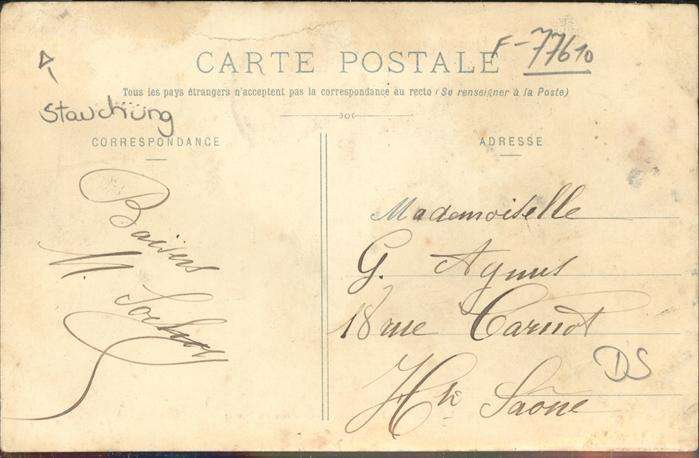 CARTE POSTALE
F-77610
Tous les pays étrangers n'acceptent pas la correspondance au recto (Se renseigner à la Poste)
Stauchung
CORRESPONDANCE
Baisers
M.
ADRESSE
Mademoiselle
G.
18 rue Carnot
Hte Saône
DS